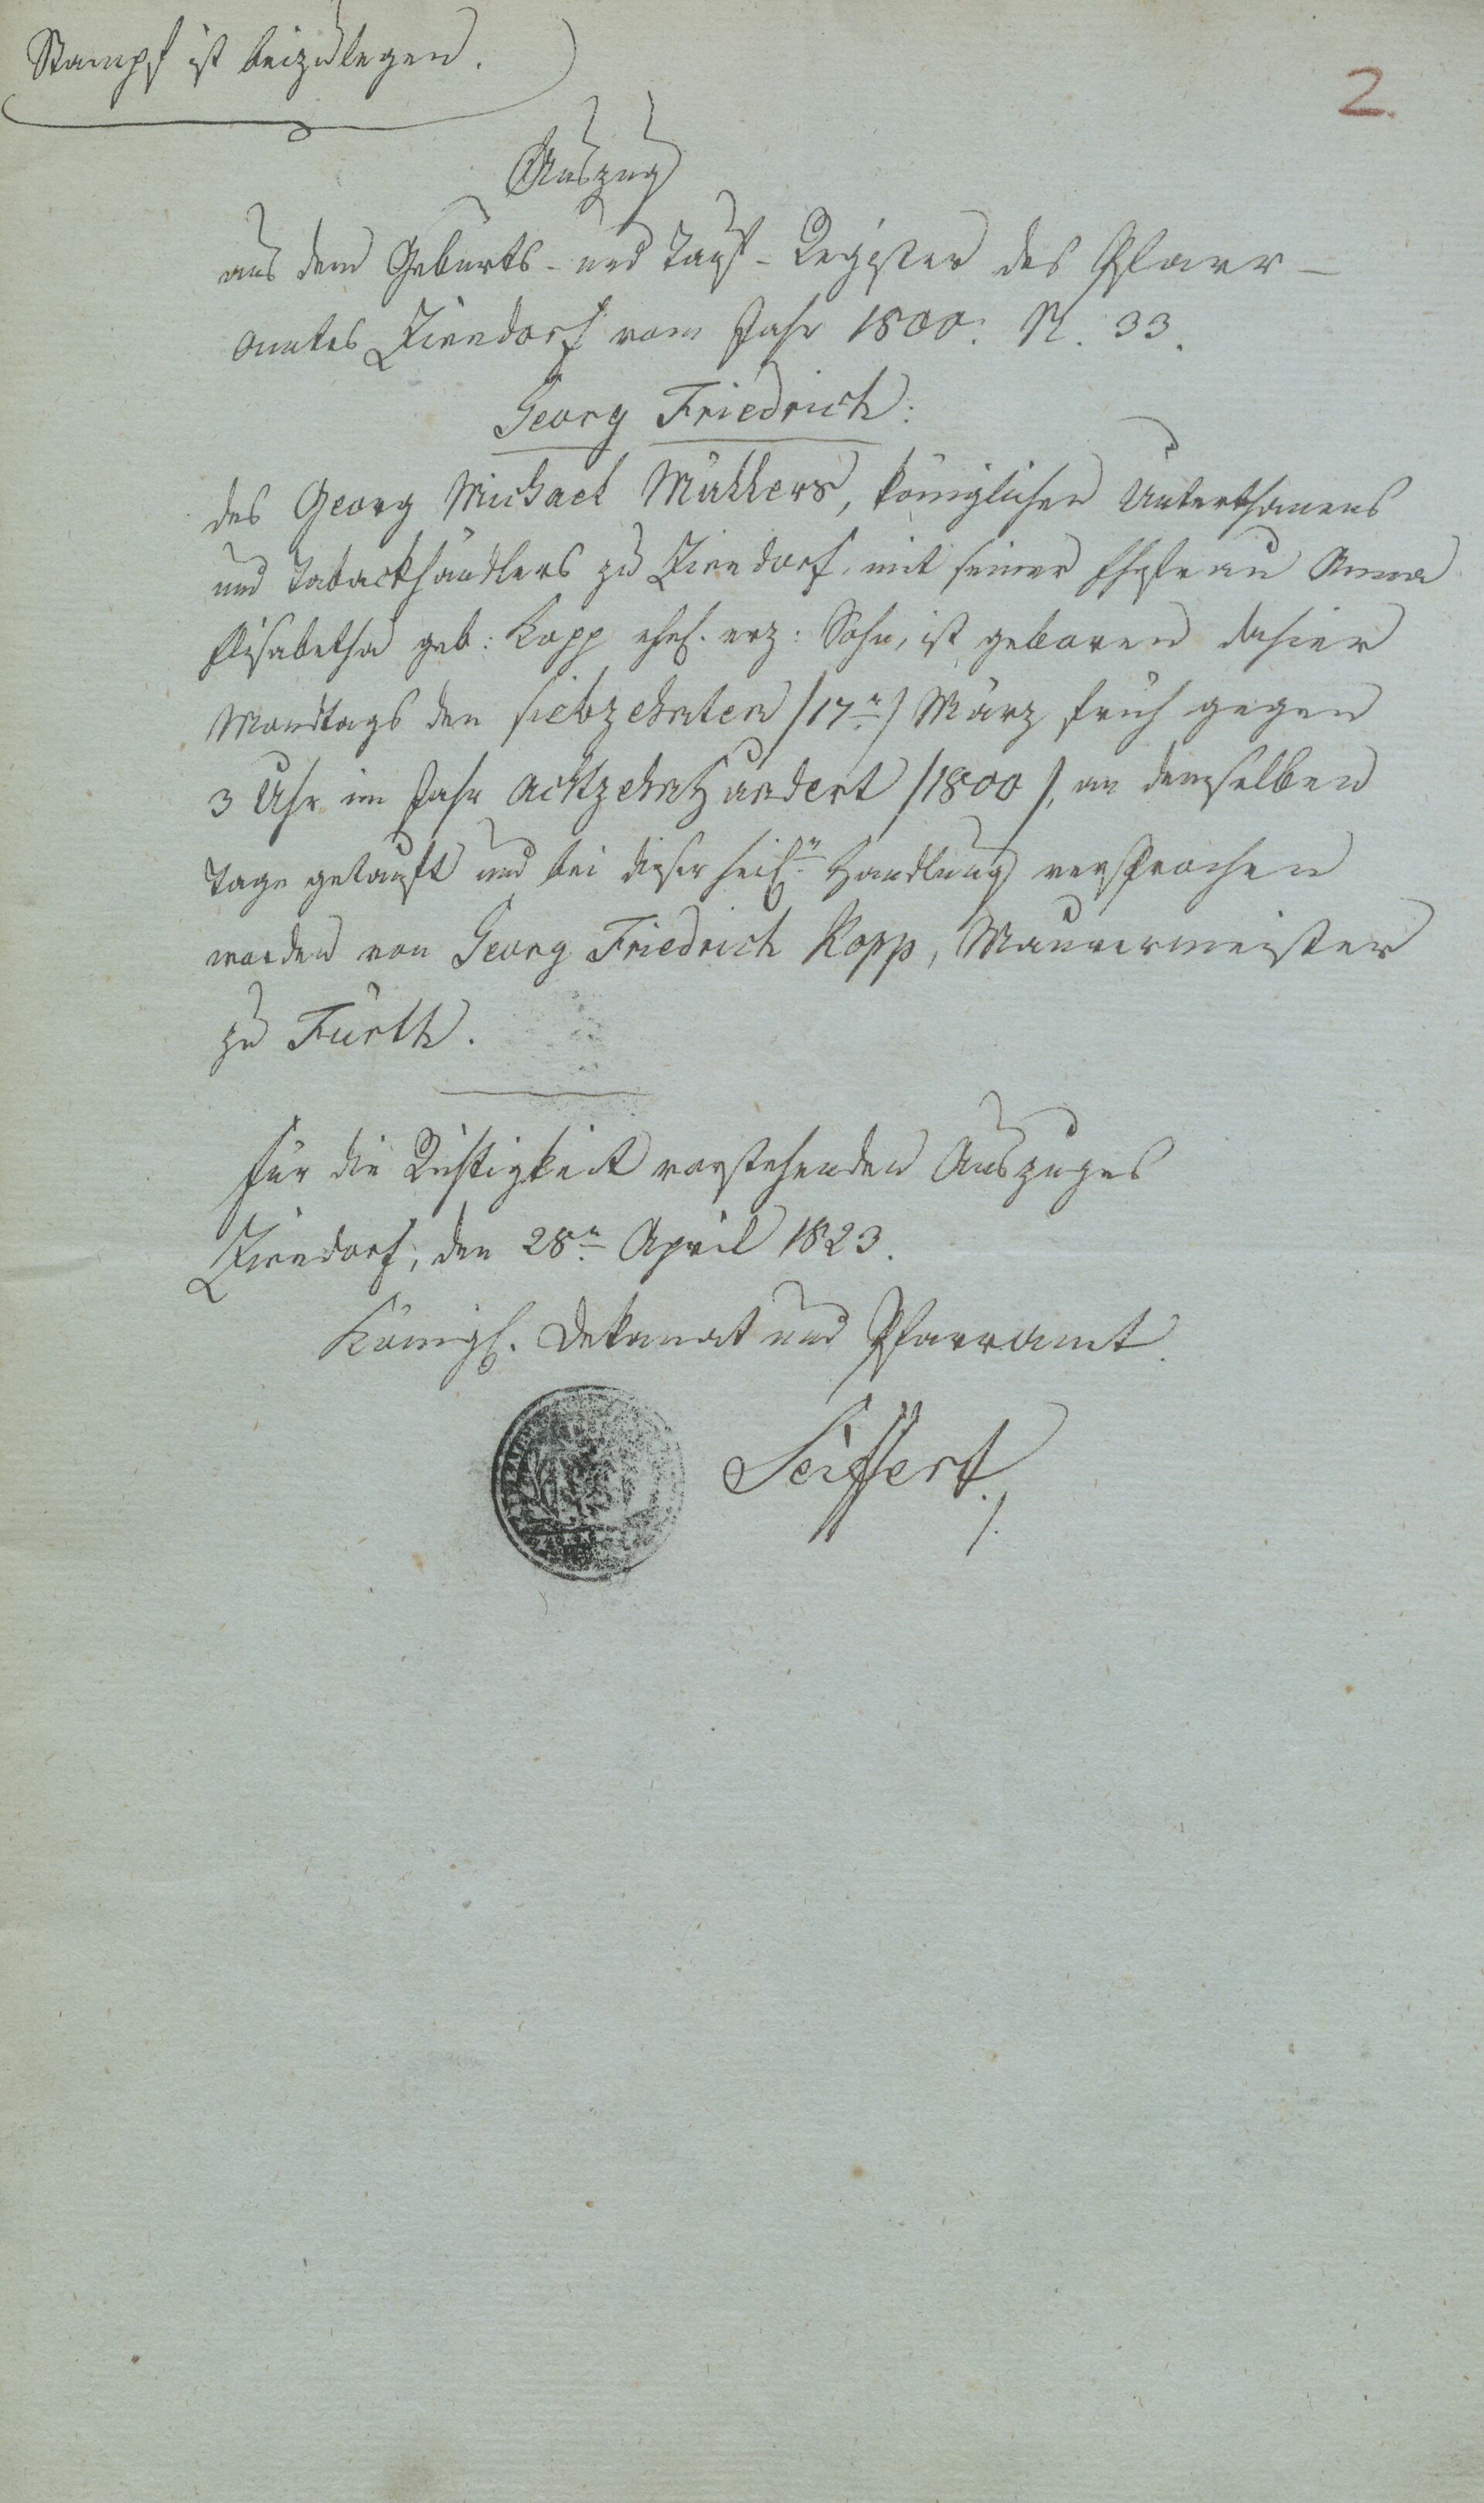 Stempf ist beizulegen.
2.
Auszug
aus dem Geburts- und Tauf-Register des Pfarr-
amtes Zirndorf vom Jahr 1800. N. 33.
Georg Friedrich:
des Georg Michael Müllers, königlichen Unterthanens
und Tabackhändlers zu Zirndorf, mit seiner Ehefrau Anna
Elisabetha geb: Kopp ehel. erz: Sohn, ist geboren dahier
Mondtags den siebzehnten /17n/ März früh gegen
3 Uhr im Jahr achtzehnhundert /1800/, an demselben
Tage getauft und bei dieser heiln Handlung versprochen
worden von Georg Friedrich Kopp, Maurermeister
zu Fürth.
Für die Richtigkeit vorstehenden Auszuges
Zirndorf, den 28n April 1823.
Königl. Dekanat und Pfarramt.
Seiffert.